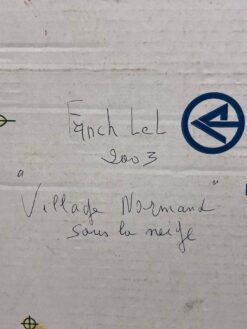 Fañch Lel
2003
"Village Normand"
sous la neige